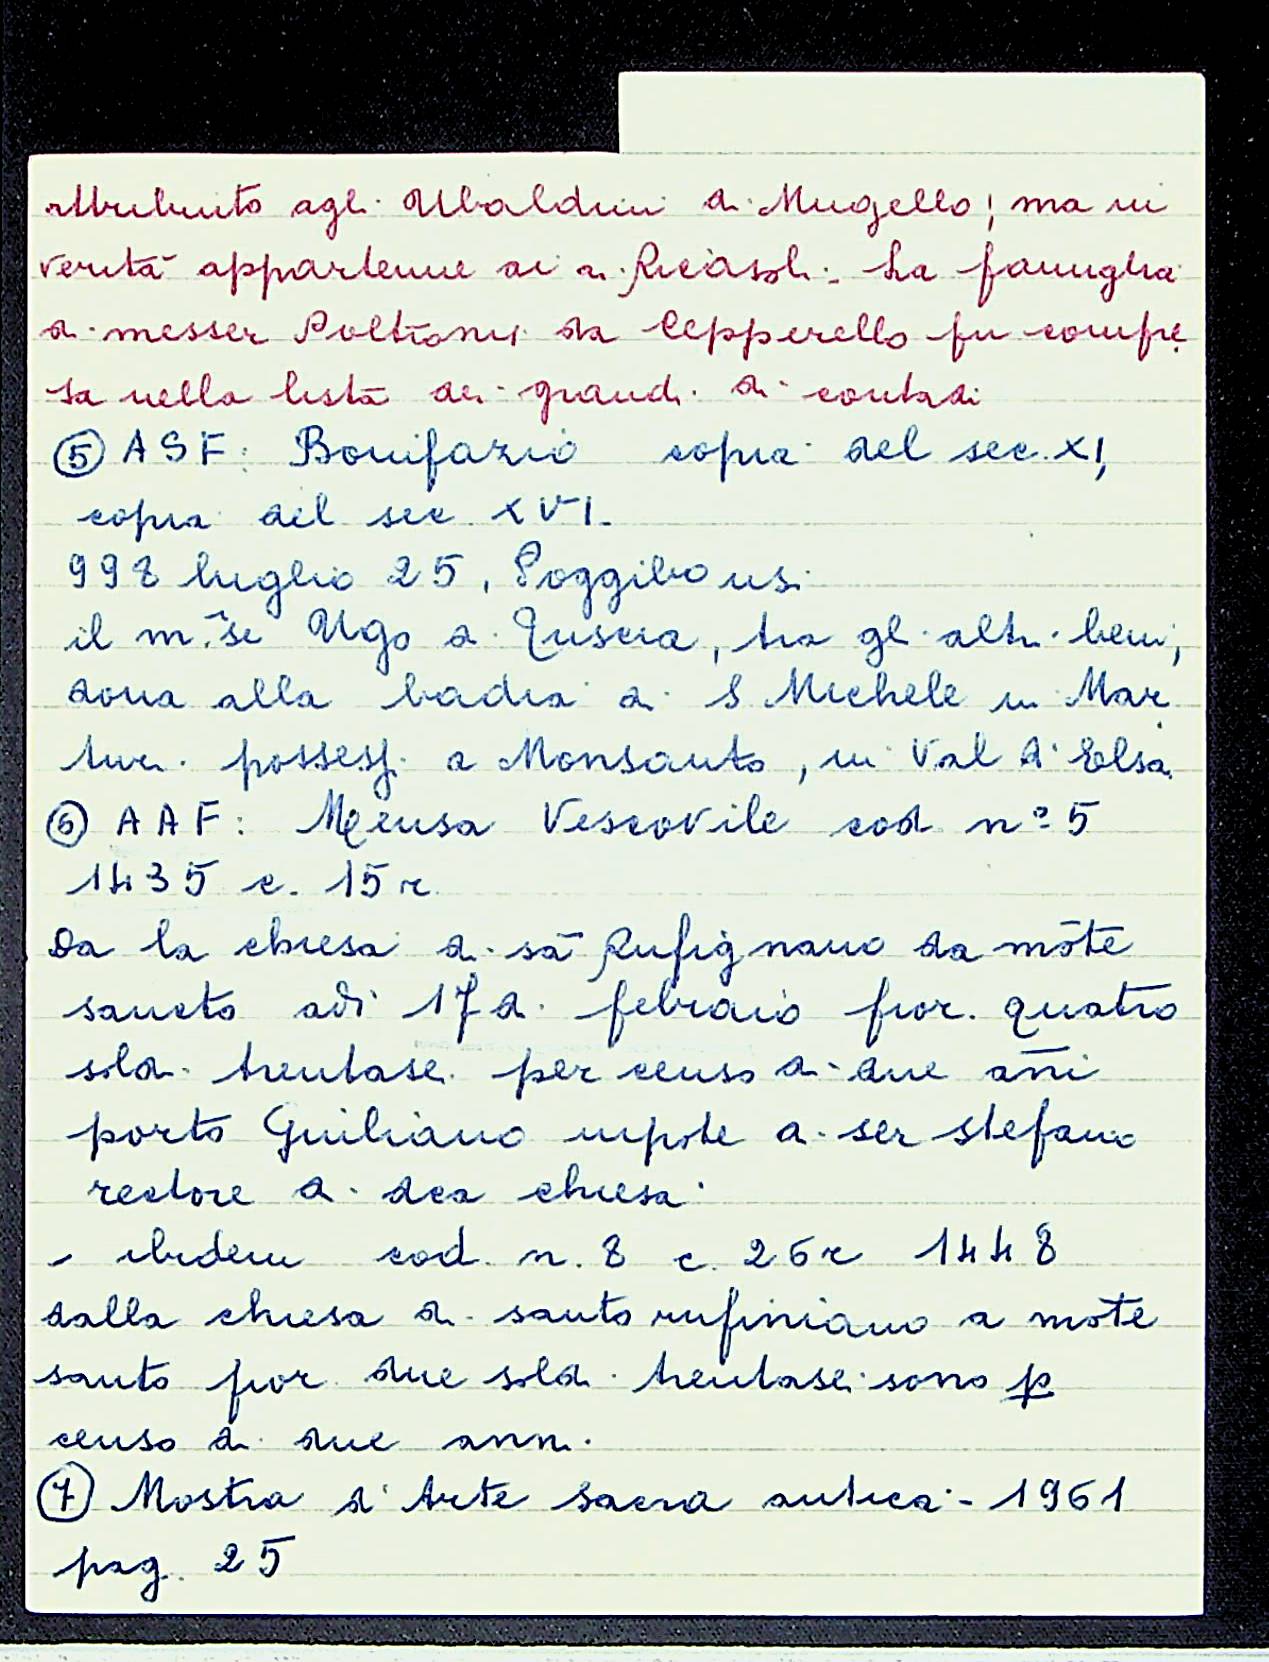 attribuito agli Ubaldini di Mugello; ma in
verità appartenne ai da Ricasoli. La famiglia
di messer Poltrone da Cepperello fu compre
sa nella lista dei grandi di contadi
⑤ ASF: Bonifazio copia del sec. XI,
copia del sec XVI.
998 luglio 25, Poggibonsi
il m.se Ugo di Tuscia, tra gli altri beni,
dona alla badia di S Michele in Mar
turi possessi a Monsanto, in Val d'Elsa.
⑥ AAF: Mensa Vescovile cod nº 5
1435 c. 15r
Da la chiesa di sā Rufignano da mōte
sancto adì 17 di febraio fior. quatro
soldi trentasei per censo di due añi
portò Guiliano nipote di ser stefano
rectore di dca chiesa
- ibidem cod. n. 8 c. 26r 1448
dalla chiesa di santo rufiniano a mōte
santo fior due soldi trentasei sono p
censo di due anni.
⑦ Mostra d'Arte sacra antica - 1961
pag. 25